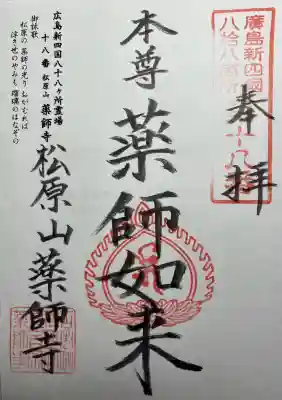 廣島新四國
八拾八ヶ所
十八
奉拝
本尊 薬師如来
広島新四国八十八ヶ所霊場
十八番 松原山 薬師寺
御詠歌
松原の 薬師の光り ねがむれば
浮き世のやみも 瑠璃のはなぞの
松原山薬師寺